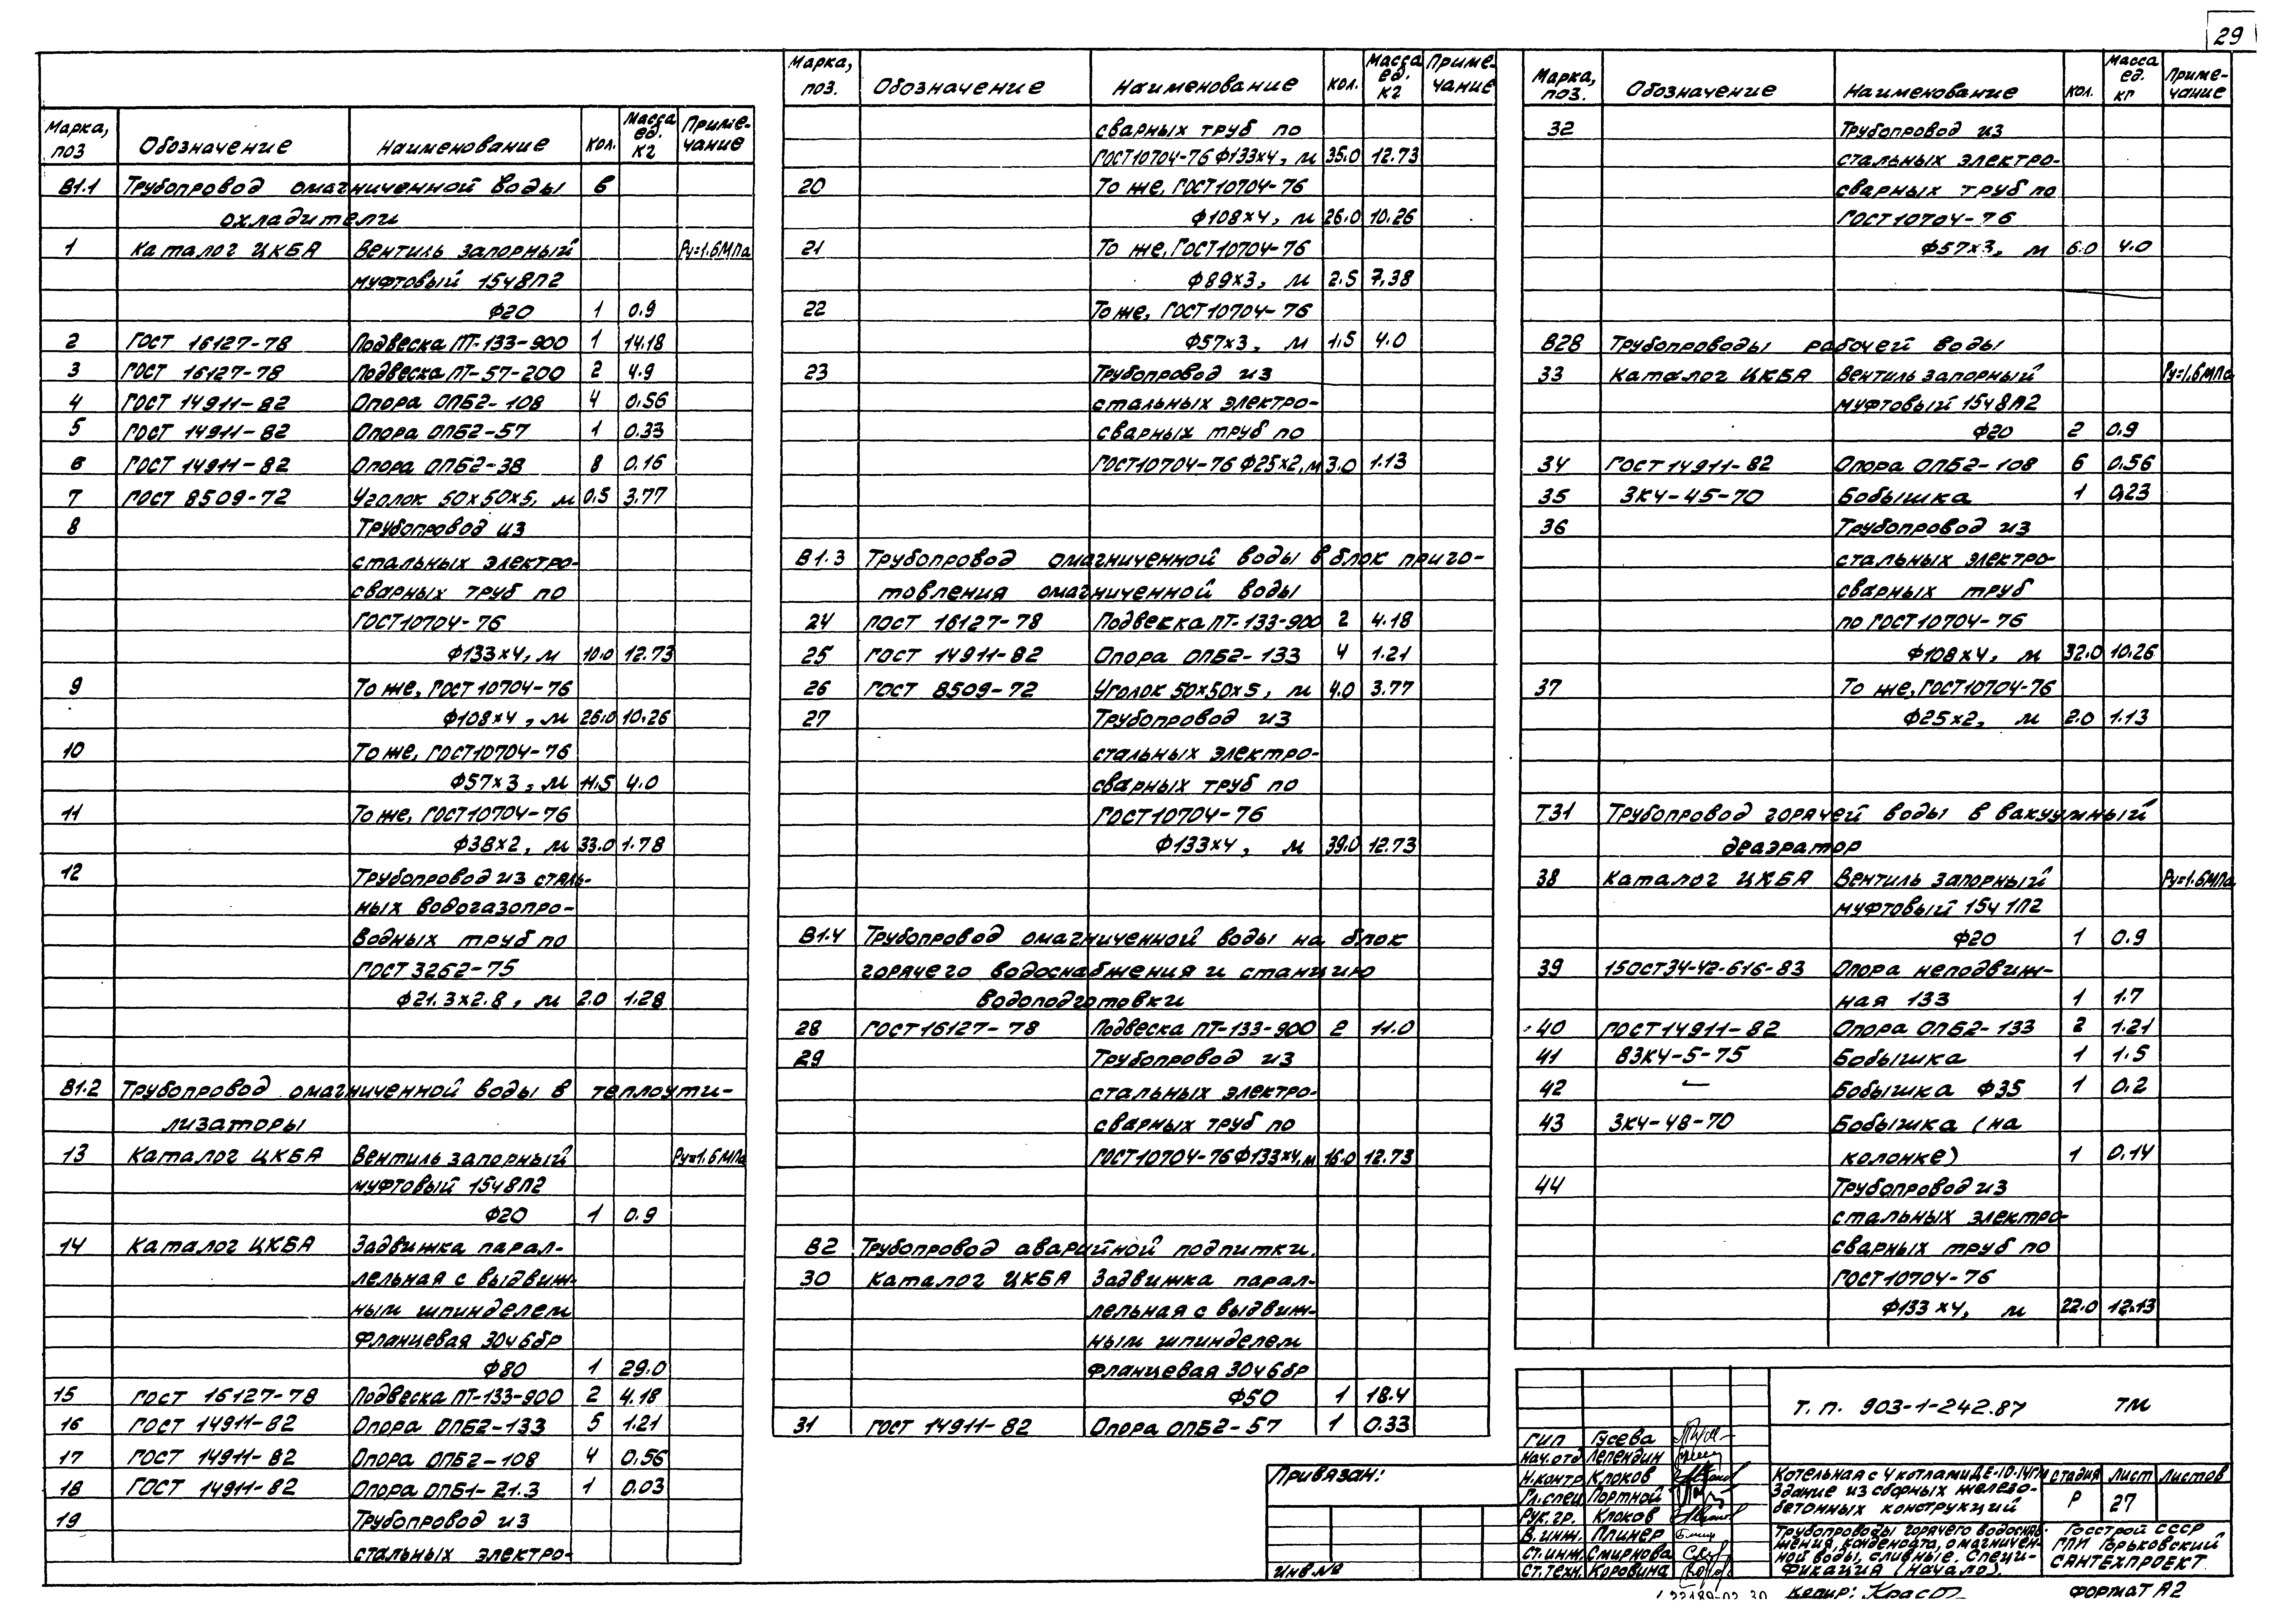 29
Марка, поз Обозначение Наименование Кол. Масса ед. кг Приме-чание
В1.1 Трубопровод омагниченной воды в
охладители
1 Каталог ЦКБА Вентиль запорный Ру=1.6МПа
муфтовый 15ч8П2
Ф20 1 0.9
2 ГОСТ 16127-78 Подвеска ПТ-133-900 1 14.18
3 ГОСТ 16127-78 Подвеска ПТ-57-200 2 4.9
4 ГОСТ 14911-82 Опора ОПБ2-108 4 0.56
5 ГОСТ 14911-82 Опора ОПБ2-57 1 0.33
6 ГОСТ 14911-82 Опора ОПБ2-38 8 0.16
7 ГОСТ 8509-72 Уголок 50х50х5, м 0.5 3.77
8 Трубопровод из
стальных электро-
сварных труб по
ГОСТ10704-76
Ф133х4, м 10.0 12.73
9 То же, ГОСТ 10704-76
Ф108х4, м 26.0 10.26
10 То же, ГОСТ10704-76
Ф57х3, м 11.5 4.0
11 То же, ГОСТ10704-76
Ф38х2, м 33.0 1.78
12 Трубопровод из сталь-
ных водогазопро-
водных труб по
ГОСТ 3262-75
Ф21.3х2.8, м 2.0 1.28
В1.2 Трубопровод омагниченной воды в теплоути-
лизаторы
13 Каталог ЦКБА Вентиль запорный Ру=1.6МПа
муфтовый 15ч8П2
Ф20 1 0.9
14 Каталог ЦКБА Задвижка парал-
лельная с выдвиж-
ным шпинделем
Фланцевая 30ч6бр
Ф80 1 29.0
15 ГОСТ 16127-78 Подвеска ПТ-133-900 2 4.18
16 ГОСТ 14911-82 Опора ОПБ2-133 5 1.21
17 ГОСТ 14911-82 Опора ОПБ2-108 4 0.56
18 ГОСТ 14911-82 Опора ОПБ1-21.3 1 0.03
19 Трубопровод из
стальных электро-
Марка, поз. Обозначение Наименование Кол. Масса ед. кг Приме-чание
сварных труб по
ГОСТ10704-76 Ф133х4, м 35.0 12.73
20 То же, ГОСТ10704-76
Ф108х4, м 26.0 10.26
21 То же, ГОСТ10704-76
Ф89х3, м 2.5 7.38
22 То же, ГОСТ10704-76
Ф57х3, м 1.5 4.0
23 Трубопровод из
стальных электро-
сварных труб по
ГОСТ10704-76 Ф25х2, м 3.0 1.13
В1.3 Трубопровод омагниченной воды в блок приго-
товления омагниченной воды
24 ГОСТ 16127-78 Подвеска ПТ-133-900 2 4.18
25 ГОСТ 14911-82 Опора ОПБ2-133 4 1.21
26 ГОСТ 8509-72 Уголок 50х50х5, м 4.0 3.77
27 Трубопровод из
стальных электро-
сварных труб по
ГОСТ10704-76
Ф133х4, м 39.0 12.73
В1.4 Трубопровод омагниченной воды на блок
горячего водоснабжения и станцию
водоподготовки
28 ГОСТ16127-78 Подвеска ПТ-133-900 2 11.0
29 Трубопровод из
стальных электро-
сварных труб по
ГОСТ10704-76 Ф133х4, м 16.0 12.73
В2 Трубопровод аварийной подпитки.
30 Каталог ЦКБА Задвижка парал-
лельная с выдвиж-
ным шпинделем
Фланцевая 30ч6бр
Ф50 1 18.4
31 ГОСТ 14911-82 Опора ОПБ2-57 1 0.33
Марка, поз. Обозначение Наименование Кол. Масса ед. кг Приме-чание
32 Трубопровод из
стальных электро-
сварных труб по
ГОСТ10704-76
Ф57х3, м 6.0 4.0
В28 Трубопроводы рабочей воды
33 Каталог ЦКБА Вентиль запорный Ру=1.6МПа
муфтовый 15ч8П2
Ф20 2 0.9
34 ГОСТ14911-82 Опора ОПБ2-108 6 0.56
35 ЗК4-45-70 Бобышка 1 0.23
36 Трубопровод из
стальных электро-
сварных труб
по ГОСТ10704-76
Ф108х4, м 32.0 10.26
37 То же, ГОСТ10704-76
Ф25х2, м 2.0 1.13
Т31 Трубопровод горячей воды в вакуумный
деаэратор
38 Каталог ЦКБА Вентиль запорный Ру=1.6МПа
муфтовый 15ч1П2
Ф20 1 0.9
39 15ОСТ34-42-616-83 Опора неподвиж-
ная 133 1 1.7
40 ГОСТ14911-82 Опора ОПБ2-133 2 1.21
41 ВЗК4-5-75 Бобышка 1 1.5
42 — Бобышка Ф35 1 0.2
43 ЗК4-48-70 Бобышка (на
колонке) 1 0.14
44 Трубопровод из
стальных электро-
сварных труб по
ГОСТ10704-76
Ф133х4, м 22.0 12.13
Т.П. 903-1-242.87 ТМ
ГИП Гусева
Нач.отд Лепендин
Н.контр Клоков
Гл.спец Портной
Рук.гр. Клоков
В.инж. Плинер
Ст.инж. Смирнова
Ст.техн. Коровина
Котельная с 4 котлами ДЕ-10-14ГМ
Здание из сборных железо-
бетонных конструкций
Стадия Лист Листов
Р 27
Трубопроводы горячего водоснаб-
жения, конденсата, омагничен-
ной воды, сливные. Специ-
фикация (начало).
Госстрой СССР
ГПИ Горьковский
САНТЕХПРОЕКТ
Привязан:
Инв.№
22189-02 30
Копир: Крас
ФОРМАТ А2